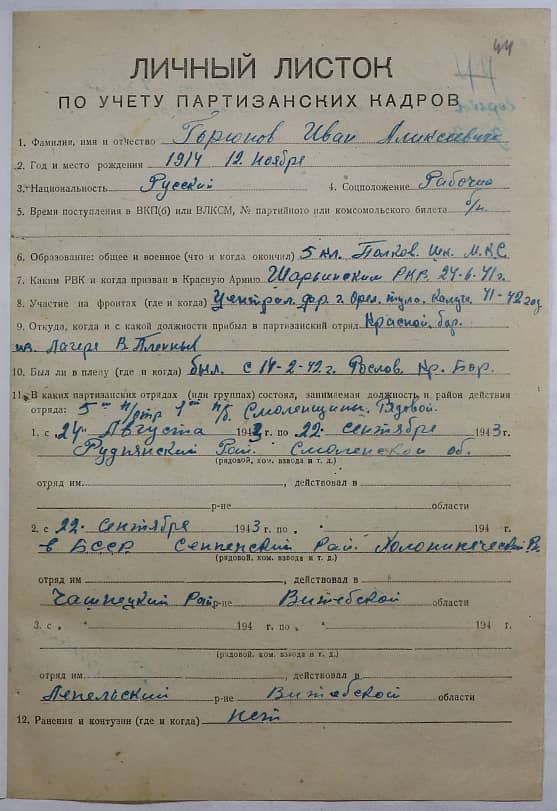 44
ЛИЧНЫЙ ЛИСТОК
ПО УЧЕТУ ПАРТИЗАНСКИХ КАДРОВ
1. Фамилия, имя и отчество Горюнов Иван Аликсеевич
2. Год и место рождения 1914 12 Ноября
3. Национальность Русский 4. Соцположение Рабочий
5. Время поступления в ВКП(б) или ВЛКСМ, № партийного или комсомольского билета б/п.
6. Образование: общее и военное (что и когда окончил) 5 кл. Полков. шк. М.К.С.
7. Каким РВК и когда призван в Красную Армию Шарьинским РКВ. 24-6-41г.
8. Участие на фронтах (где и когда) Централ. фр. г. Орел, тула, Калуга 41-42 год
9. Откуда, когда и с какой должности прибыл в партизанский отряд Красной. бор.
из Лагере В. Пленных
10. Был ли в плену (где и когда) был. с 14-2-42г. Рослов. Кр. Бор.
11. В каких партизанских отрядах (или группах) состоял, занимаемая должность и район действия
отряда: 5ый 1ой п/б. Смоленщины. Рядовой.
1. с 24. Августа 1943 г. по 22. сентября 1943 г.
Руднянский Рай. Смоленской об.
(рядовой, ком. взвода и т. д.)
отряд им. , действовал в
р-не области
2. с 22. сентября 1943 г. по 194 г.
в БССР Сенненский Рай.
(рядовой, ком. взвода и т. д.)
отряд им. , действовал в
Чашнецкий Рай р-не Витебской области
3. с 194 г. по 194 г.
(рядовой, ком. взвода и т. д.)
отряд им. , действовал в
Лепельский р-не Витебской области
12. Ранения и контузии (где и когда) нет